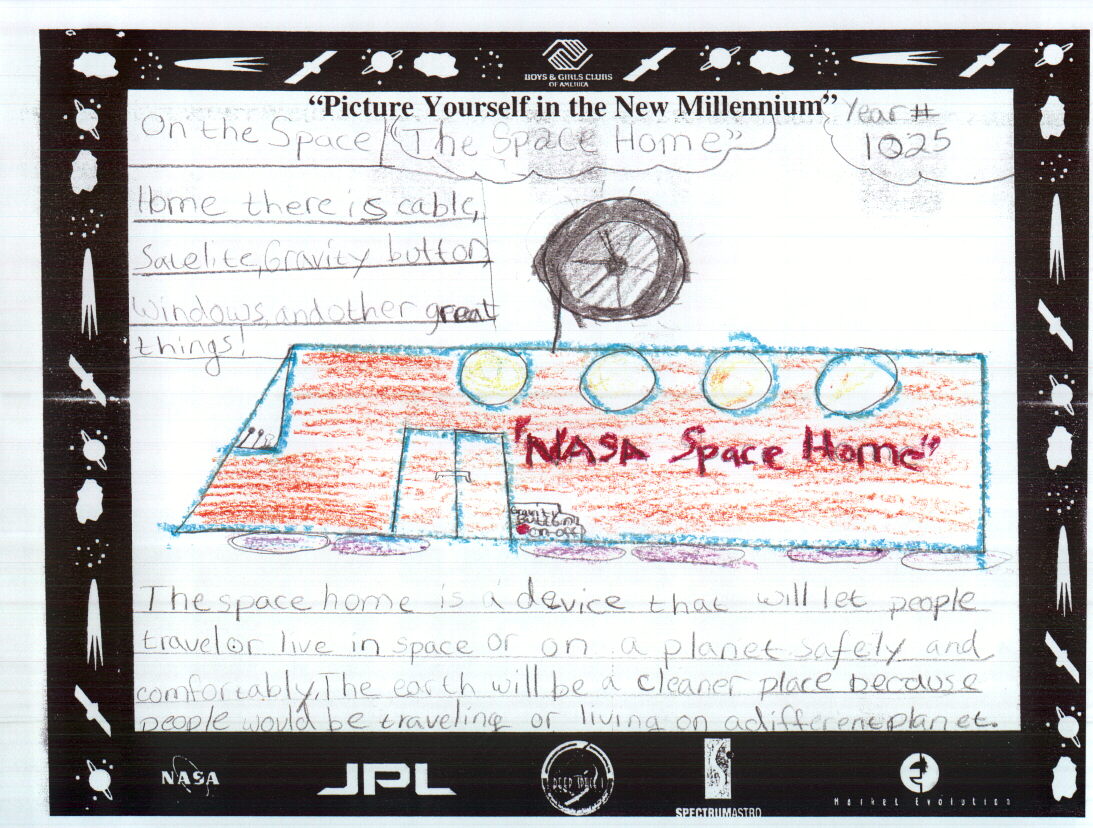 BOYS & GIRLS CLUBS
OF AMERICA
“Picture Yourself in the New Millennium”
On the Space
Home there is cable,
Satelite, Gravity button,
Windows, and other great
things!
"The Space Home"
Year #
1025
"NASA Space Home"
Gravity
Button
on-off
The space home is a device that will let people
travel or live in space or on a planet safely and
comfortably. The earth will be a cleaner place because
people would be traveling or living on a different planet.
NASA
JPL
DEEP SPACE 1
SPECTRUMASTRO
Market Evolution